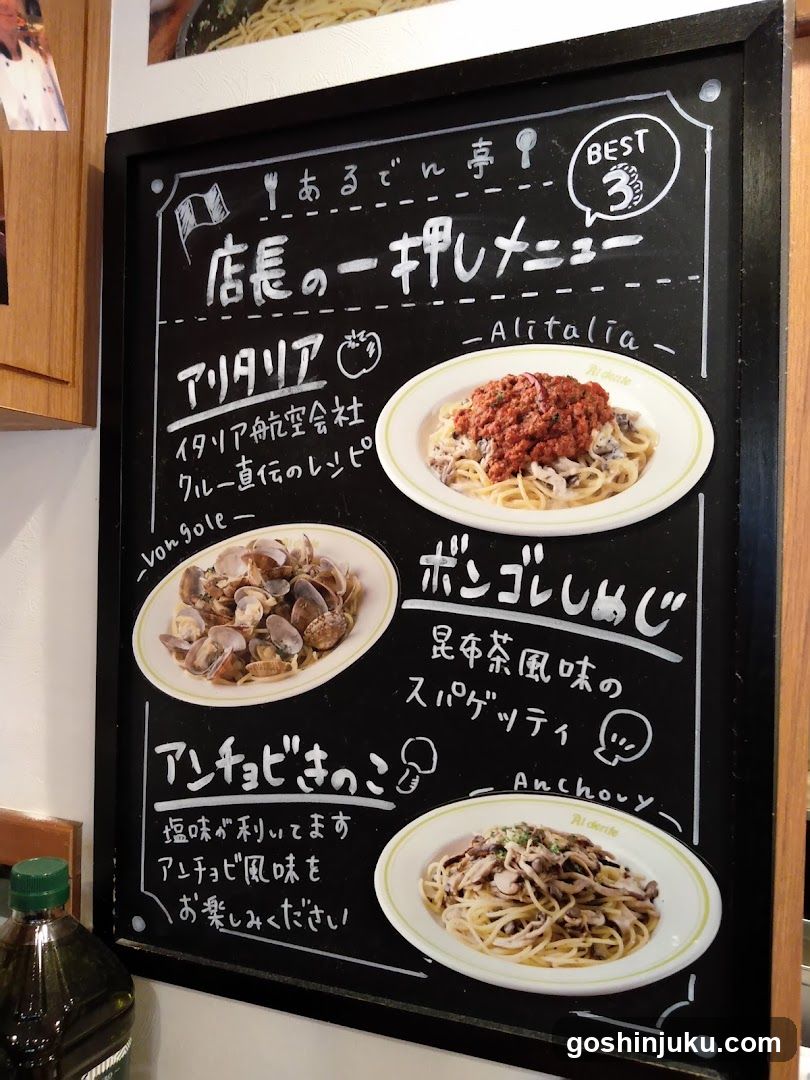 あるでん亭
BEST
3
店長の一押しメニュー
アリタリア
- Alitalia -
Al dente
イタリア航空会社
クルー直伝のレシピ
- Vongole -
ボンゴレしめじ
昆布茶風味の
スパゲッティ
アンチョビきのこ
- Anchovy -
Al dente
塩味が利いてます
アンチョビ風味を
お楽しみください
goshinjuku.com